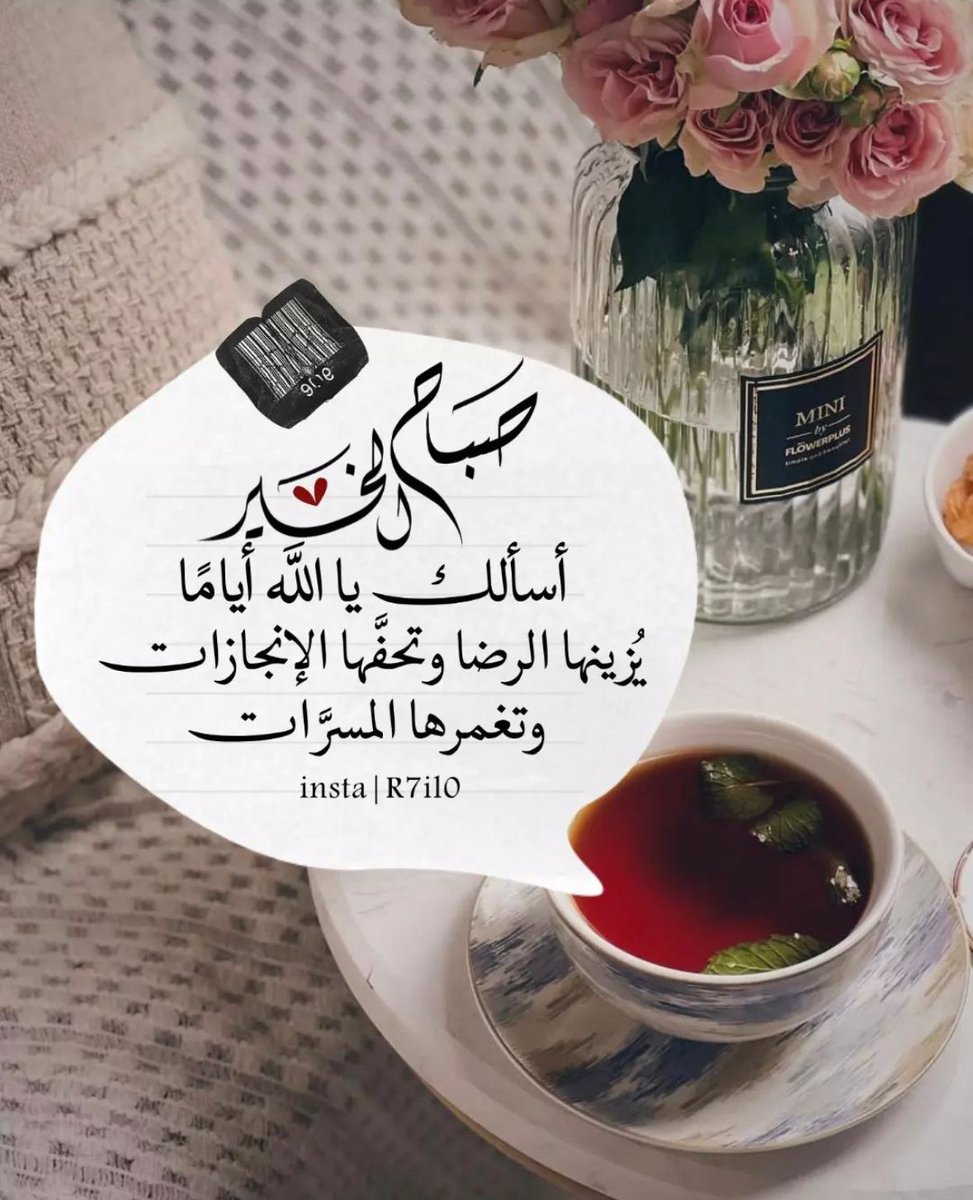 صباح الخير
أسألك يا اللَّه أيامًا
يُزينها الرضا وتحفَّها الإنجازات
وتغمرها المسرَّات
insta|R7il0
MINI
by
FLOWERPLUS
simple and beautiful